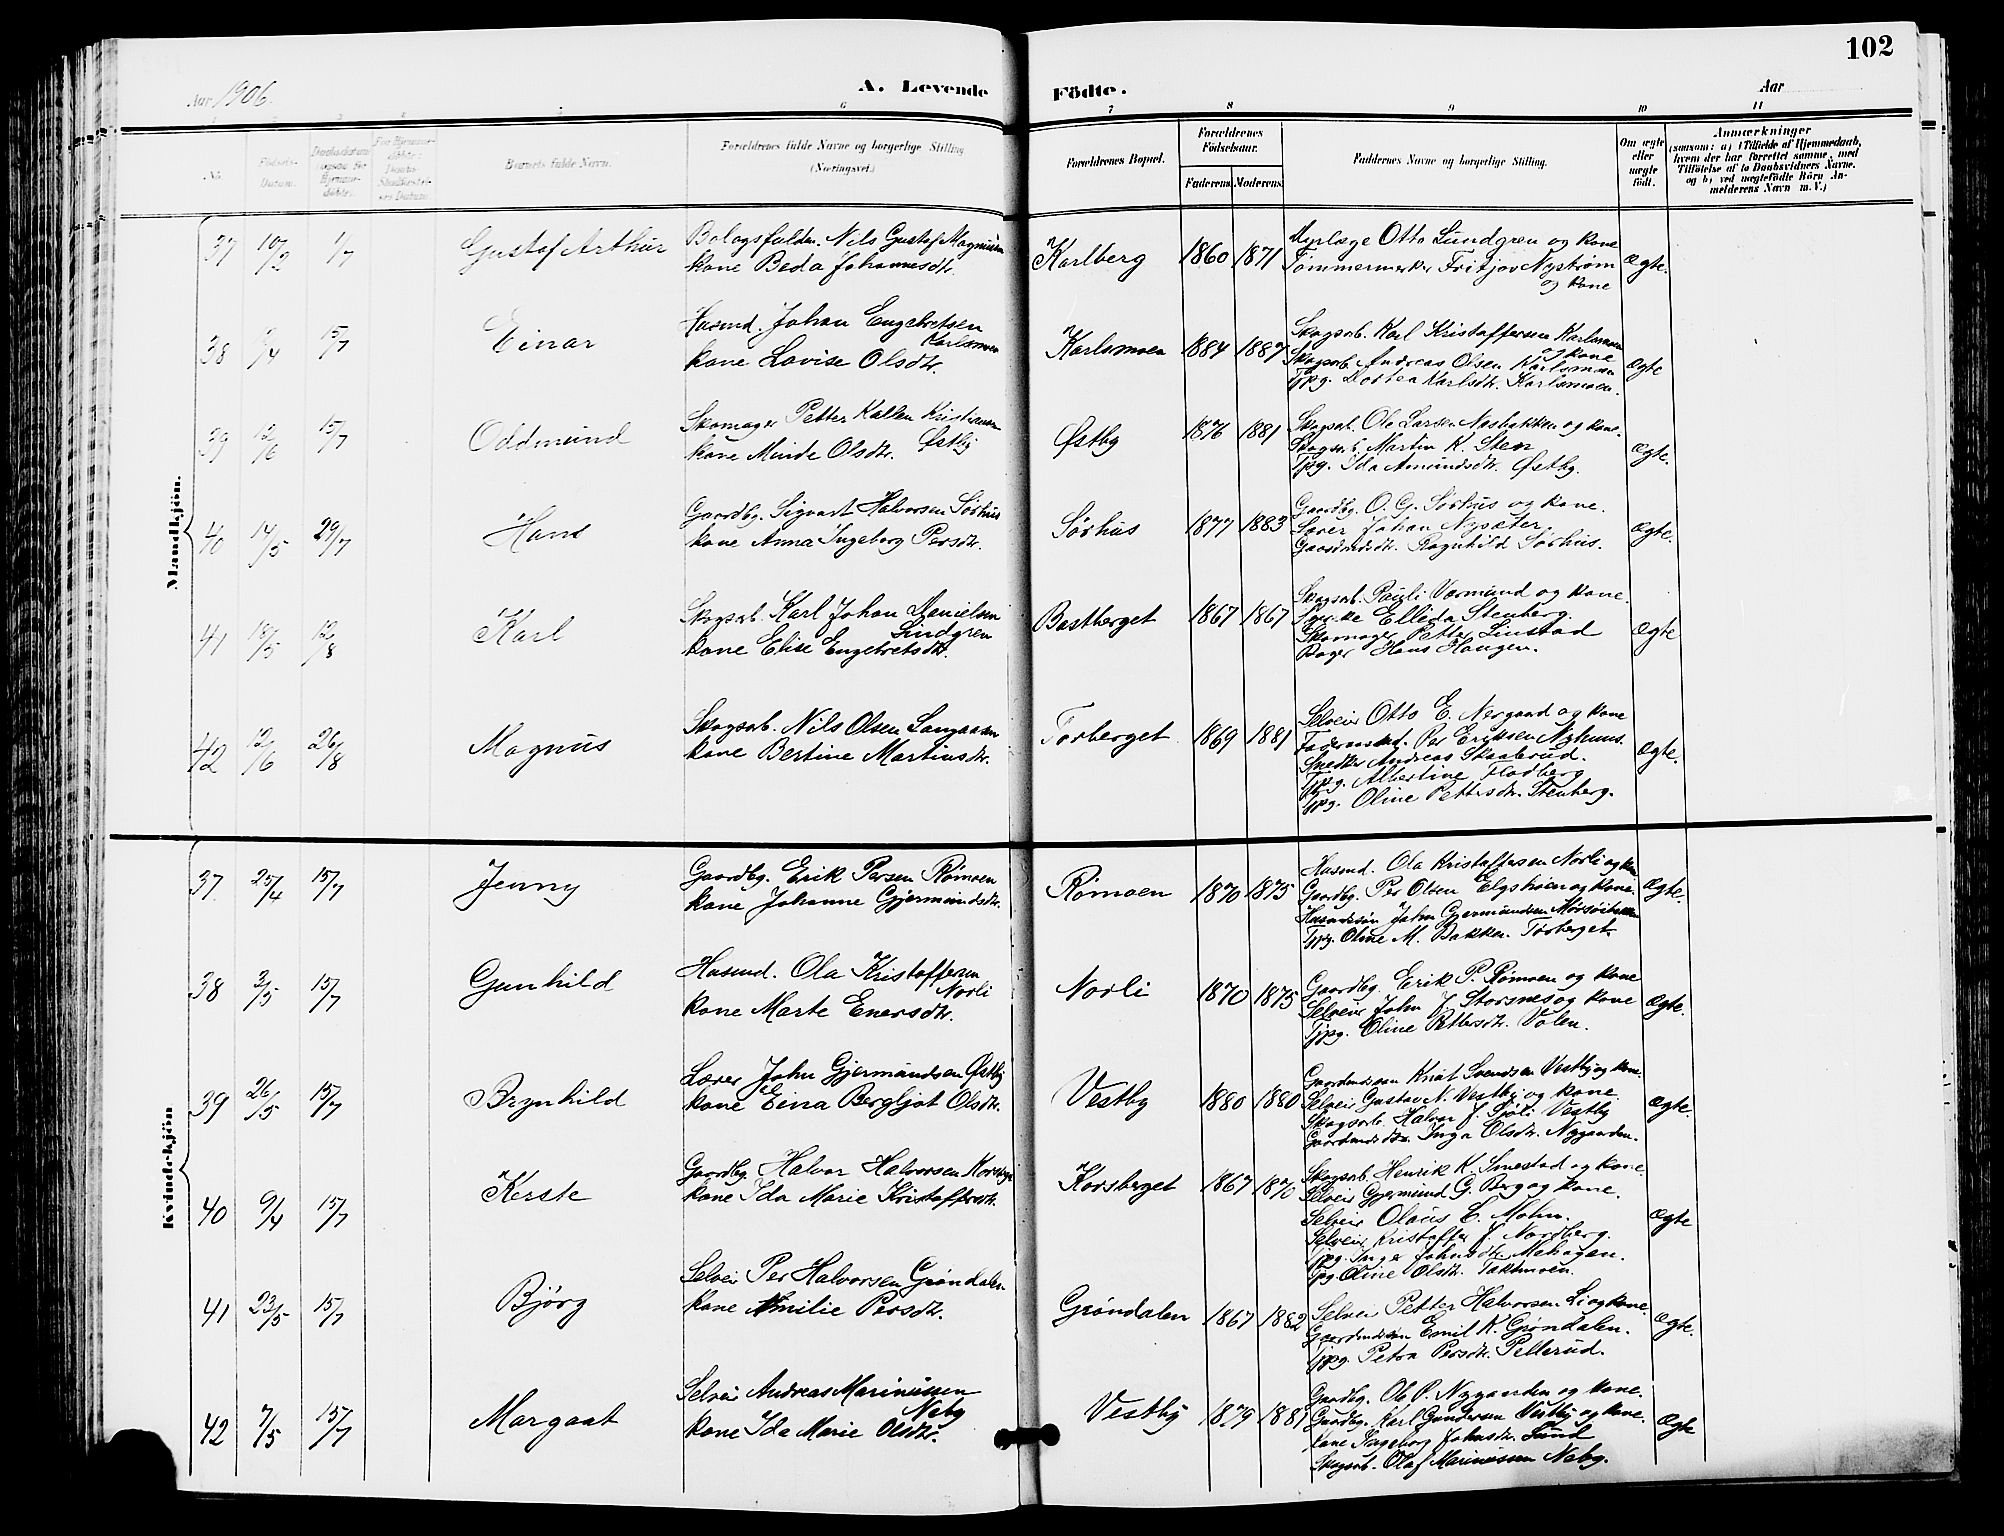 102
Aar 1906.
A. Levende Födte.
Aar
5 6 7 8 9 10 11
No.
Födsels-Datum.
Barnets fulde Navn.
Forældrenes fulde Navne og borgerlige Stilling
(Næringsvei.)
Forældrenes Bopæl.
Forældrenes Födselsaar.
Faderens. Moderens.
Faddernes Navne og borgerlige Stilling.
Om ægte eller uægte født.
Anmærkninger
(saasom: a) i Tilfælde af Hjemmedaab,
hvem der har forrettet samme, med
Tilföielse af to Daabsvidners Navne.
og b) ved uægtefödte Börn An-
melderens Navn m. V.)
Mandkjön.
37 10/2 1/7 Gustaf Arthur
Bolagsfuldm. Nils Gustaf Magnusen
kone Beda Johannesdtr.
Karlberg 1860 1871
Otto Lundgren og kone
Tømmermerker Fritjov Nystrøm
og kone
Ægte.
38 15/7 Einar
Husmd. Johan Engebretsen
Karlsmoen
kone Lovise Olsdtr.
Karlsmoen 1884 1887
Skogsarb. Karl Kristoffersen Karlsmoen
og kone
Skogsarb. Andreas Olsen Karlsmoen
Tjpg. Dortea Karlsdtr. Karlsmoen.
Ægte
39 12/6 15/7 Oddmund
Skomager Petter Kristiansen
Østby
kone Minde Olsdtr.
Østby 1876 1881
Skogsarb. Ole Larsen Næsbakken og kone.
Skogsarb. Martin K. Sten
Tjpg. Ida Amundsdtr. Østby.
Ægte.
40 14/5 29/7 Hans
Gaardbg. Sigvart Halvorsen Sørhus
kone Anna Ingeborg Persdtr.
Sørhus 1877 1883
Gaardbg. O. G. Sørhus og kone.
Lærer Johan Nysæter.
Gaardmdsdtr. Ragnhild Sørhus.
Ægte.
41 18/5 12/8 Karl
Skogsarb. Karl Johan Danielsen
Lindgren
kone Elise Engebretsdtr.
Bastberget 1867 1867
Skogsarb. Pauli Varmund og kone.
Elleda Stenberg.
Skomager Petter Linstad
Bager Hans Haugen.
Ægte
42 12/6 26/8 Magnus
Skogsarb. Nils Olsen Langaasen
kone Bertine Martinsdtr.
Torberget 1869 1881
Selveier Otto E. Nergaard og kone
Per Eriksen Nyhuus.
Snedker Andreas Skaaberud.
Tjpg. Albertine Flodberg
Tjpg. Oline Pettersdtr. Stenberg.
Ægte.
Kvindekjön
37. 25/4 15/7 Jenny
Gaardbg. Erik Persen Rømoen
kone Johanne Gjermundsdtr.
Rømoen 1870 1875
Husmd. Ola Kristoffersen Norli og kone
Gaardbg. Per Olsen Elgshøen og kone.
Husmdssøn John Gjermundsen
Tjpg. Oline M. Bakken Torberget.
Ægte.
38 3/5 15/7 Gunhild
Husmd. Ola Kristoffersen
Norli
kone Marte Enersdtr.
Norli 1870 1875
Gaardbg. Erik P. Rømoen og kone
Selveier John J. Storsnes og kone
Tjpg. Oline Pettersdtr. Volen.
Ægte.
39 26/5 15/7 Brynhild
Lærer John Gjermundsen Østby
kone Eina Bergljot Olsdtr.
Vestby 1880 1880
Gaardmdssøn Knut Svendsen Vestby og kone.
Selveier Gustav N. Vestby og kone
Skogsarb. Halvor J. Sjøli Vestby
Gaardmdsdtr. Inga Olsdtr. Nygaarden.
Ægte.
40 9/4 15/7 Kerste
Gaardbg. Halvor Halvorsen Korsberget
kone Ida Marie Kristoffersdtr.
Korsberget 1867 1870
Skogsarb. Henrik K. Smestad og kone
Selveier Gjermund G. Berg og kone.
Selveier Olaus E. Mohn.
Selveier Kristoffer J. Nordberg.
Tjpg. Inger Johnsdtr. Mehagen.
Tjpg. Oline Olsdtr.
Ægte
41 23/5 15/7 Bjørg
Selveier Per Halvorsen Grøndalen
kone Emilie Persdtr.
Grøndalen 1867 1882
Selveier Petter Halvorsen Li og kone.
Gaardmdssøn Emil K. Grøndalen.
Tjpg. Petra Persdtr. Pellerud.
Ægte.
42 7/5 15/7 Margaat
Selveier Andreas Marinussen
Neby
kone Ida Marie Olsdtr.
Vestby 1879 1881
Gaardbg. Ole P. Nygaarden og kone.
Gaardbg. Karl Gundersen Vestby og kone.
kone Ingeborg Johnsdtr. Lund
Skogsarb. Olaf Marinussen Neby.
Ægte